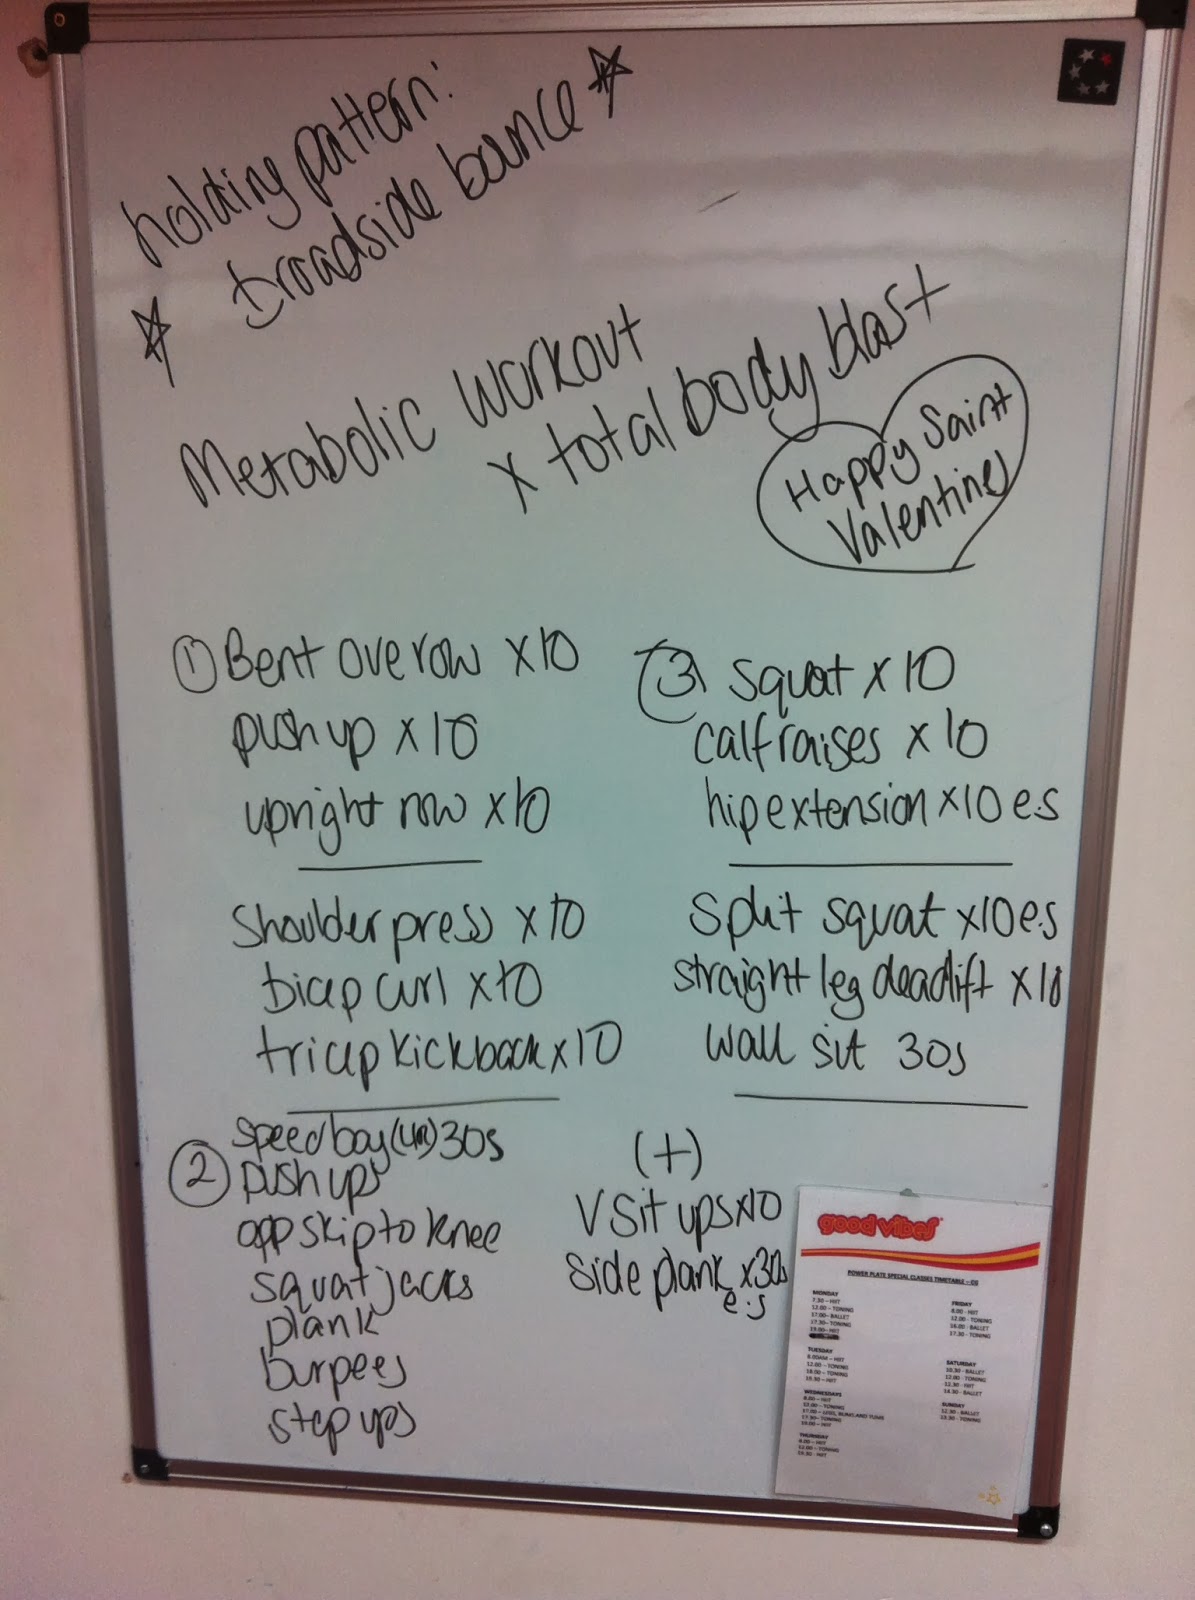 holding pattern:
broadside bounce
Metabolic workout
x total body blast
Happy Saint
Valentines
① Bent ove row x10
push up x 10
upright row x10
shoulder press x10
bicep curl x10
tricep kickback x10
speed bag 30s
② push ups
opp skip to knee
squat jacks
plank
burpees
step ups
③ squat x 10
calf raises x 10
hip extension x10 e.s
split squat x10 e.s
straight leg deadlift x10
wall sit 30s
(+)
V sit ups x10
side plank x30s
e.s
good vibes
POWER PLATE SPECIAL CLASSES TIMETABLE –
MONDAY
7.30 – HIIT
12.00 – TONING
17.00 – BALLET
17.30 – TONING
19.00 – HIIT
TUESDAY
8.00AM – HIIT
12.00 – TONING
18.00 – TONING
19.30 – HIIT
WEDNESDAYS
8.00 – HIIT
12.00 – TONING
17.00 – LEGS, BUMS AND TUMS
17.30 – TONING
19.00 – HIIT
THURSDAY
8.00 – HIIT
12.00 – TONING
19.30 – HIIT
FRIDAY
8.00 - HIIT
12.00 - TONING
16.00 - BALLET
17.30 - TONING
SATURDAY
10.30 - BALLET
12.00 - TONING
12.30 - HIIT
14.30 - BALLET
SUNDAY
12.30 - BALLET
13.30 - TONING